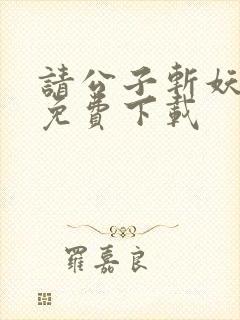 請公子斬妖
免費下載
羅嘉良